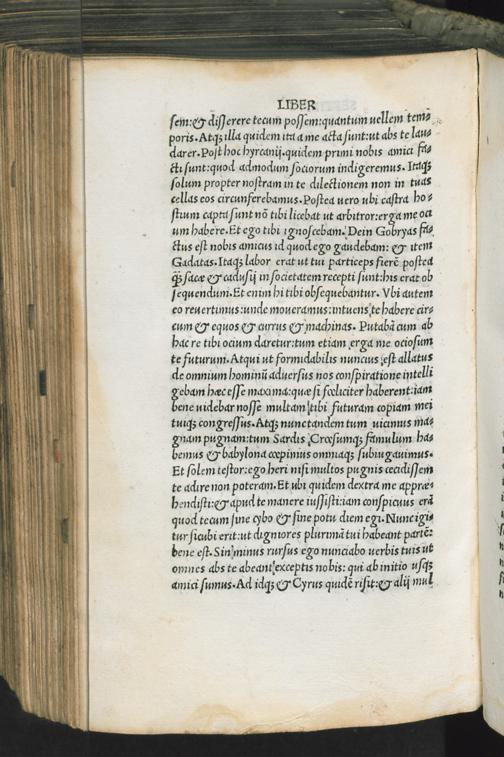 LIBER
sem:& disserere tecum possem:quantum uellem tem-
poris.Atq; illa quidem ita a me acta sunt:ut abs te lau-
darer.Post hoc hyrcanij.quidem primi nobis amici fa-
cti sunt:quod admodum sociorum indigeremus. Itaq;
solum propter nostram in te dilectionem non in tuas
cellas eos circunferebamus.Postea uero ubi castra ho-
stium capta sunt nõ tibi licebat ut arbitror:erga me oci
um habere.Et ego tibi ignoscebam. Dein Gobryas fa-
ctus est nobis amicus id quod ego gaudebam: & item
Gadatas.Itaq; labor erat ut tui particeps fierē postea
q̃; sacæ & cadusij in societatem recepti sunt:his erat ob
sequendum.Et enim hi tibi obsequebantur. Vbi autem
eo reuertimus:unde moueramus:intuens te habere cir-
cum & equos & currus & machinas. Putabã cum ab
hac re tibi ocium daretur:tum etiam erga me ociosum
te futurum.Atqui ut formidabilis nuncius est allatus
de omnium hominũ aduersus nos conspiratione intelli
gebam hæc esse maxima:quæ si fœliciter haberent:iam
bene uidebar nosse multam tibi futuram copiam mei
tuiq; congressus.Atq; nunc tandem tum uicimus ma-
gnam pugnam:tum Sardis Crœsumq; famulum ha-
bemus & babylona cœpimus omniaq; subiugauimus.
Et solem testor:ego heri nisi multos pugnis cecidissem
te adire non poteram.Et ubi quidem dextra me appræ-
hendisti:& apud te manere iussisti:iam conspicuus erã
quod tecum sine cybo & sine potu diem egi.Nunc igi-
tur sicubi erit:ut digniores plurimã tui habeant partē:
bene est.Sin minus rursus ego nunciabo uerbis tuis ut
omnes abs te abeant exceptis nobis: qui ab initio usq;
amici sumus.Ad idq; & Cyrus quidē risit:& alij mul